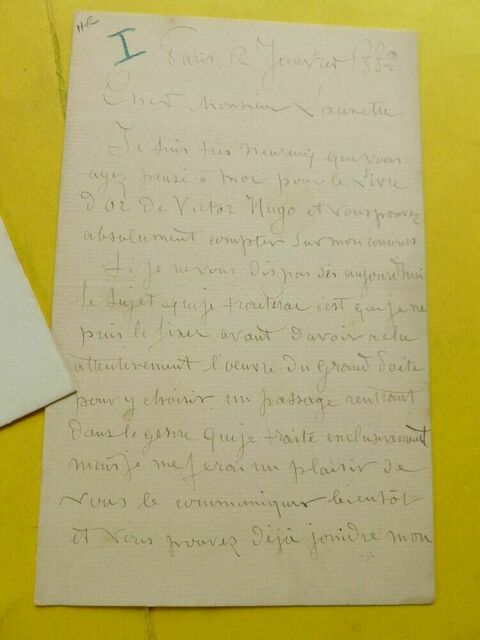 HR
I
Paris, 12 Janvier 1882
Cher Monsieur Launette
Je suis très heureux que vous
ayez pensé à moi pour le Livre
d'or de Victor Hugo et vous pouvez
absolument compter sur mon concours.
Si je ne vous dis pas dès aujourd'hui
le sujet que je traiterai c'est que je ne
puis le fixer avant d'avoir relu
attentivement l'oeuvre du Grand Poète
pour y choisir un passage rentrant
dans le genre que je traite exclusivement
mais je me ferai un plaisir de
vous le communiquer bientôt
et vous pouvez déjà joindre mon